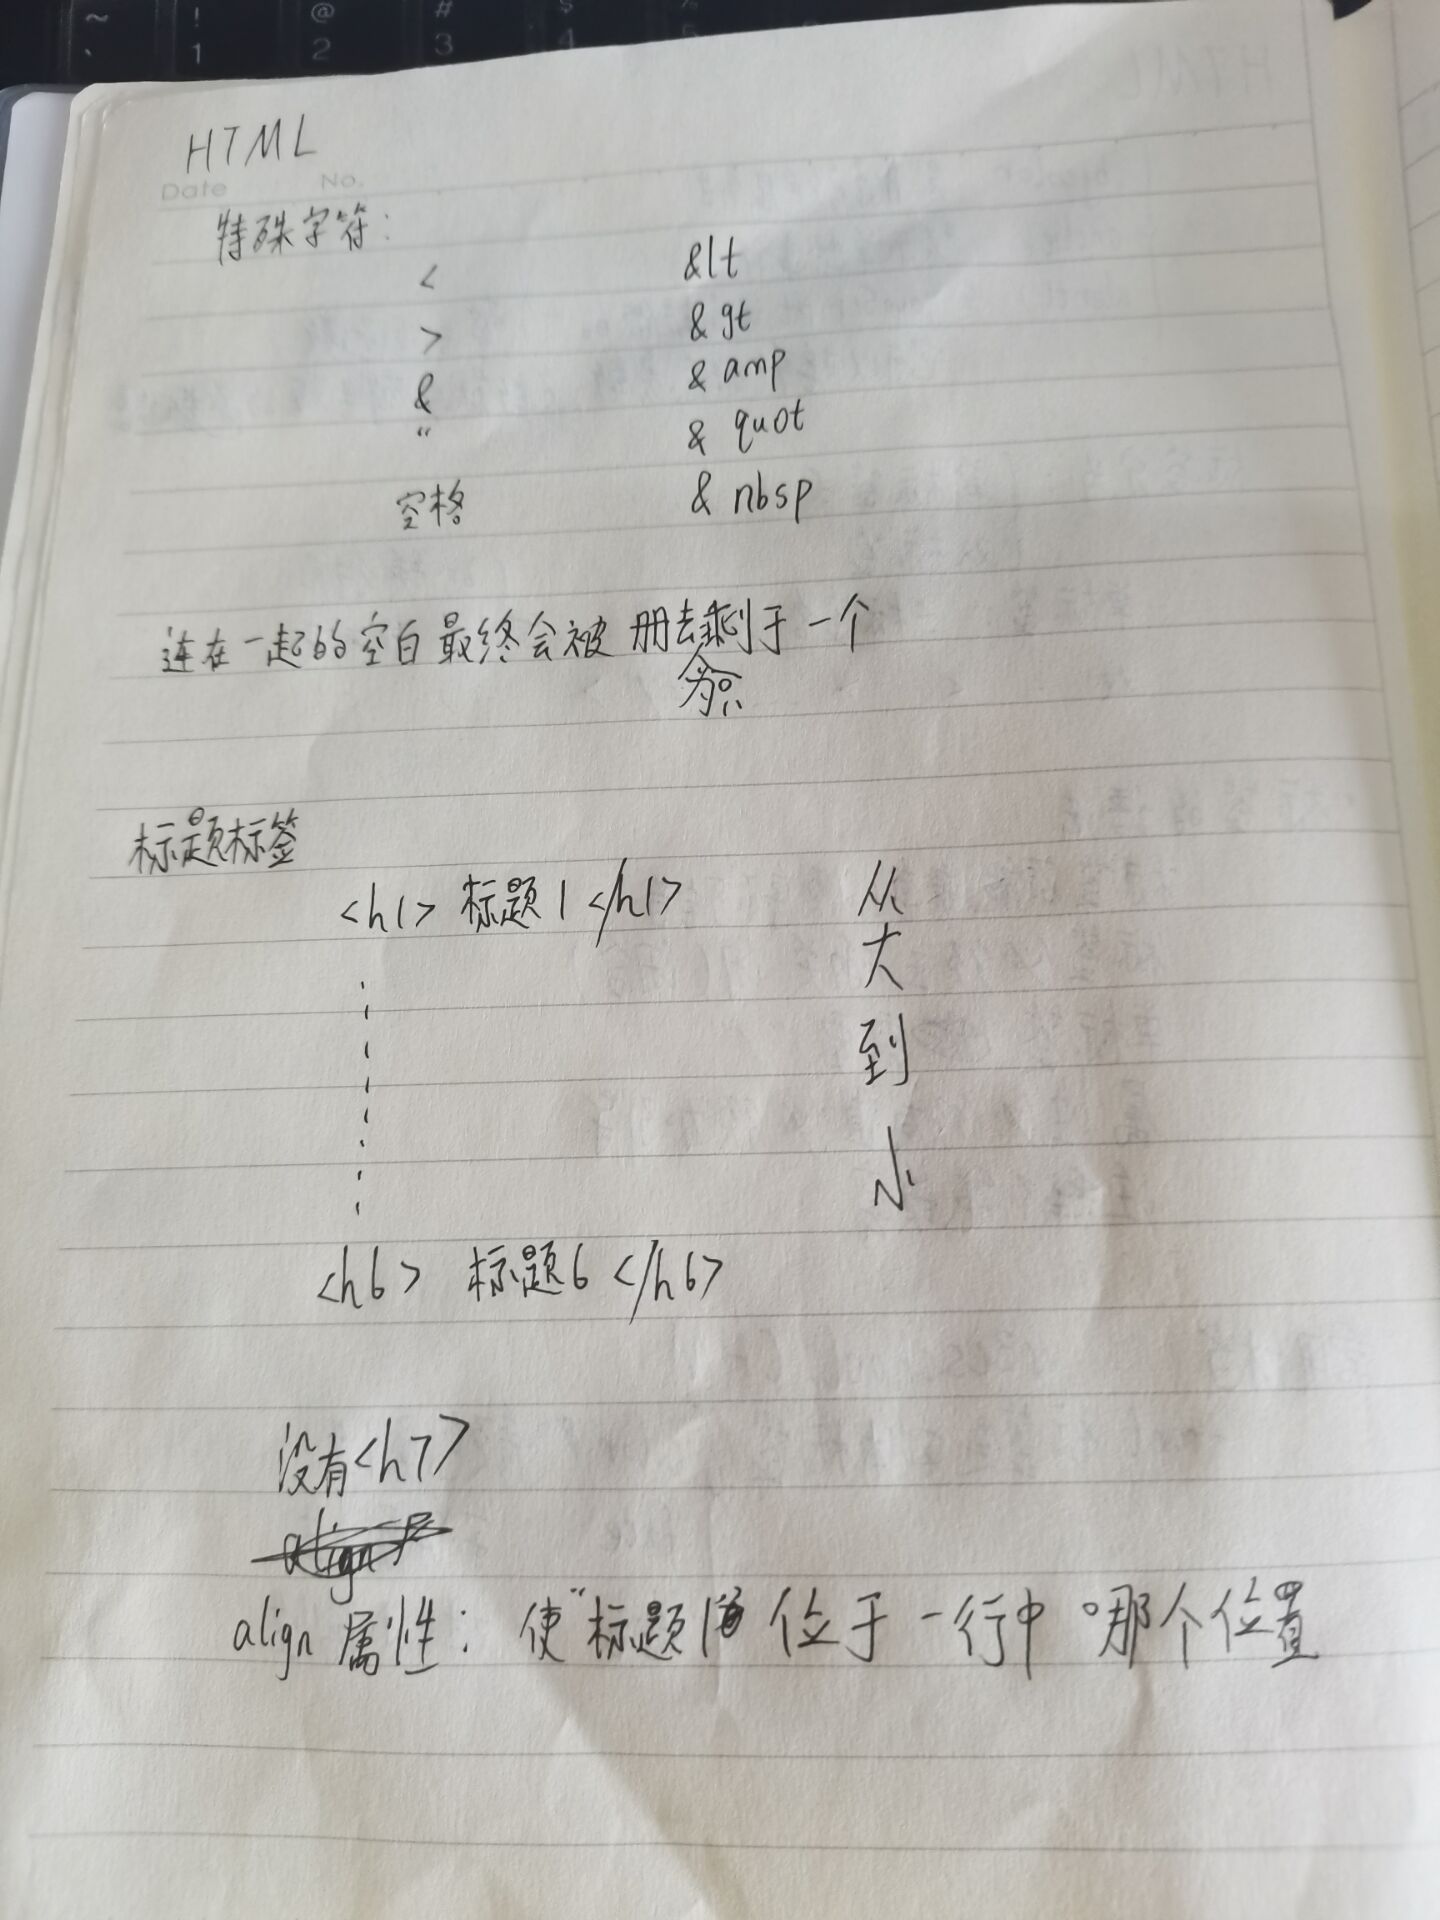 ~ ! @ #
` 1 2 3 4
HTML
Date No.
特殊字符:
< &lt
> &gt
& &amp
" &quot
空格 &nbsp
连在一起的空白最终会被册去剩于一个
为只
标题标签
<h1> 标题1 </h1> 从
大
到
小
<h6> 标题6 </h6>
没有<h7>
align
align 属性: 使"标题 位于一行中 哪个位置